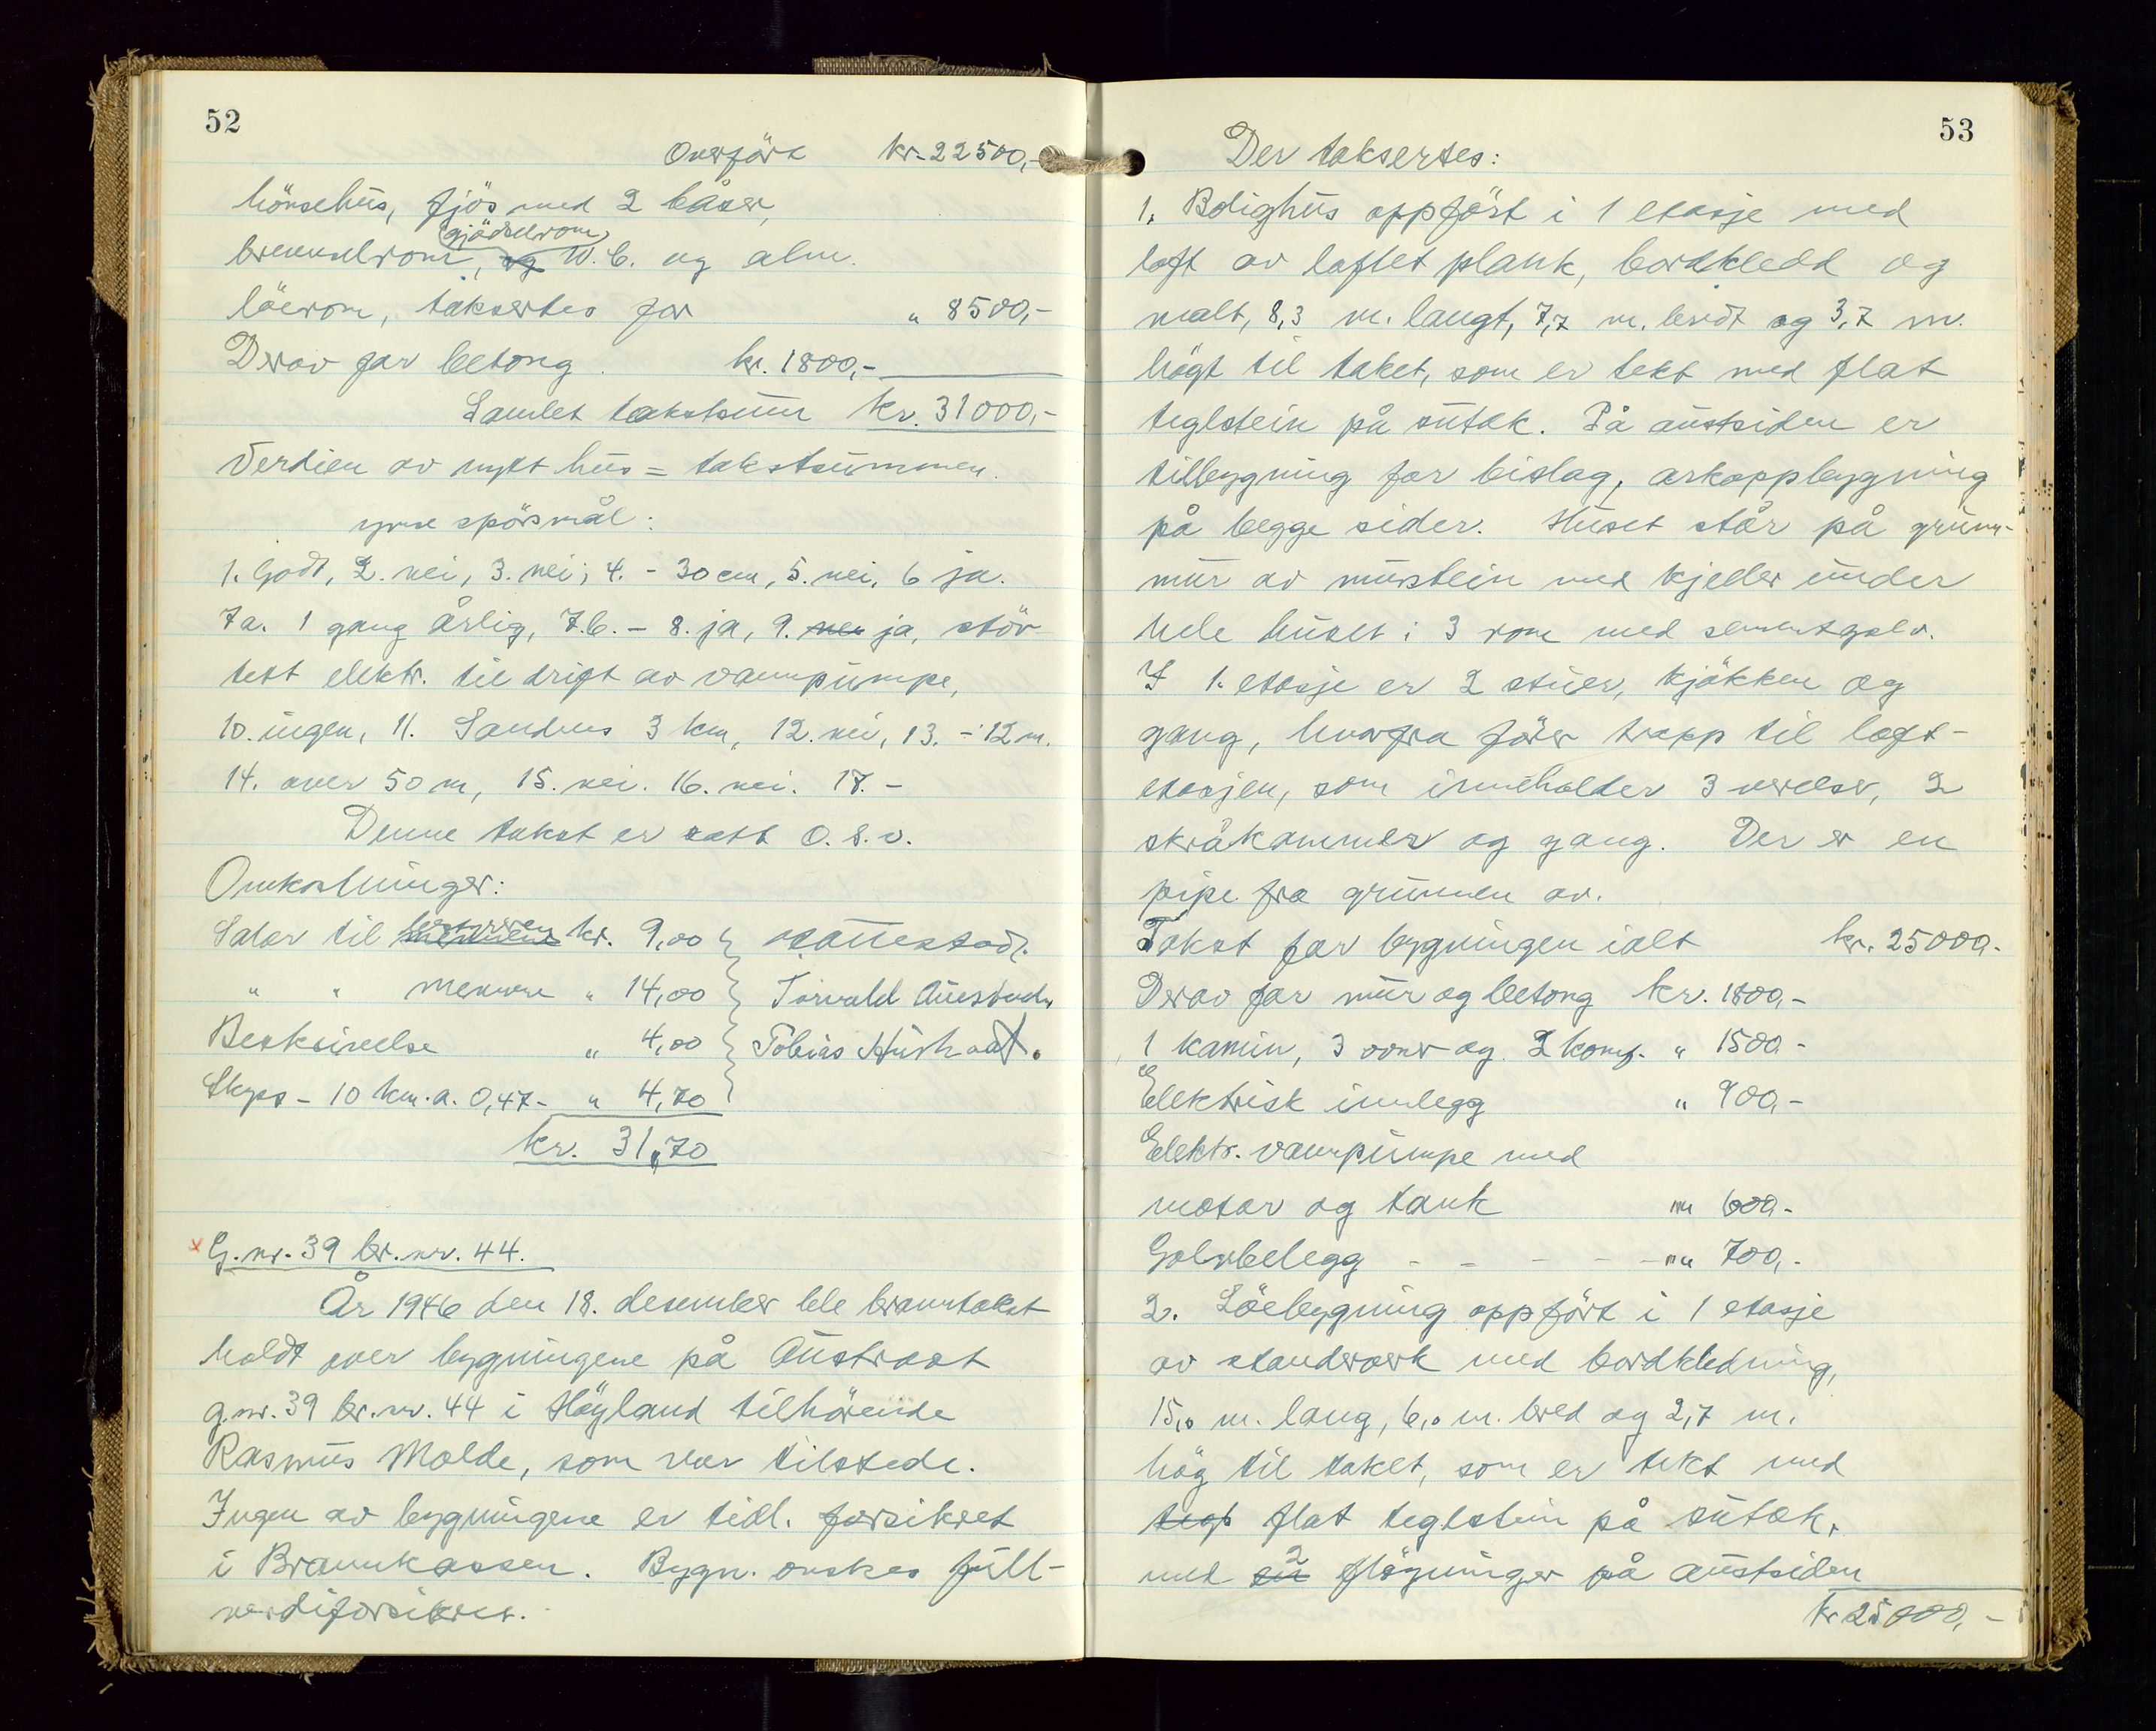 52
Overført kr. 22500,-
hönsehus, fjös med 2 båser,
gjödselrom
brenselrom, og W.C. og alm.
löerom, taksertes for " 8500,-
Derav for betong kr. 1800,-
Samlet takstsum kr. 31000,-
Verdien av nytt hus = takstsummen.
ymse spörsmål:
1. Godt, 2. nei, 3. nei; 4. - 30 cm, 5. nei, 6 ja.
7a. 1 gang årlig, 7.b. - 8. ja, 9. nei ja, stöv
tett elektr. til drift av vannpumpe,
10. ingen, 11. Sandnes 3 km, 12. nei, 13. - 12 m.
14. over 50 m, 15. nei. 16. nei. 17. -
Denne takst er satt o.s.v.
Omkostninger:
Salær til kr. 9,00
" " mennene " 14,00 Torvald Auestad
Beskrivelse " 4,00 Tobias
Skyss - 10 km. a. 0,47 - " 4,70
kr. 31,70
G.nr. 39 br.nr. 44.
År 1946 den 18. desember ble branntakst
holdt over bygningene på Austraat
g.nr. 39 br.nr. 44 i Höyland tilhörende
Rasmus Molde, som var tilstede.
Ingen av bygningene er tidl. forsikret
i Brannkassen. Bygn. onskes full-
verdiforsikret.
53
Der taksertes:
1. Bolighus oppfört i 1 etasje med
loft av laftet plank, bordkledd og
malt, 8,3 m. langt, 7,7 m. bredt og 3,7 m.
högt til taket, som er tekt med flat
teglstein på sutak. På austsiden er
tilbygning for bislag, arkoppbygning
på begge sider. Huset står på grunn-
mur av murstein med kjeller under
hele huset i 3 rom med sementgolv.
I 1. etasje er 2 stuer, kjökken og
gang, hvorfra förer trapp til loft-
etasjen, som inneholder 3 verelser, 2
skråkammer og gang. Der er en
pipe fra grunnen av.
Takst for bygningen ialt kr. 25000.-
Derav for mur og betong kr. 1800,-
1 kamin, 3 ovner og 2 komf. " 1500.-
Elektrisk innlegg " 900,-
Elektr. vannpumpe med
motor og tank " 600.-
Golvbelegg - - - - - " 700,-
2. Löebygning oppfört i 1 etasje
av standverk med bordkledning,
15,0 m. lang, 6,0 m. bred og 2,7 m.
hög til taket, som er tekt med
tegl flat teglstein på sutak,
med en 2 flöyninger på austsiden
kr 25000,-